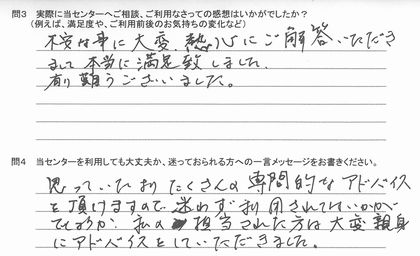 問3 実際に当センターへご相談、ご利用なさっての感想はいかがでしたか？
(例えば、満足度や、ご利用前後のお気持ちの変化など)
不安な事に大変、熱心にご解答いただき
まして本当に満足致しました。
有り難うございました。
問4 当センターを利用しても大丈夫か、迷っておられる方への一言メッセージをお書きください。
思っていたよりたくさんの専門的なアドバイス
を頂けますので迷わず利用されてはいかがで
しょうか。私の担当された方は大変親身
にアドバイスをしていただきました。